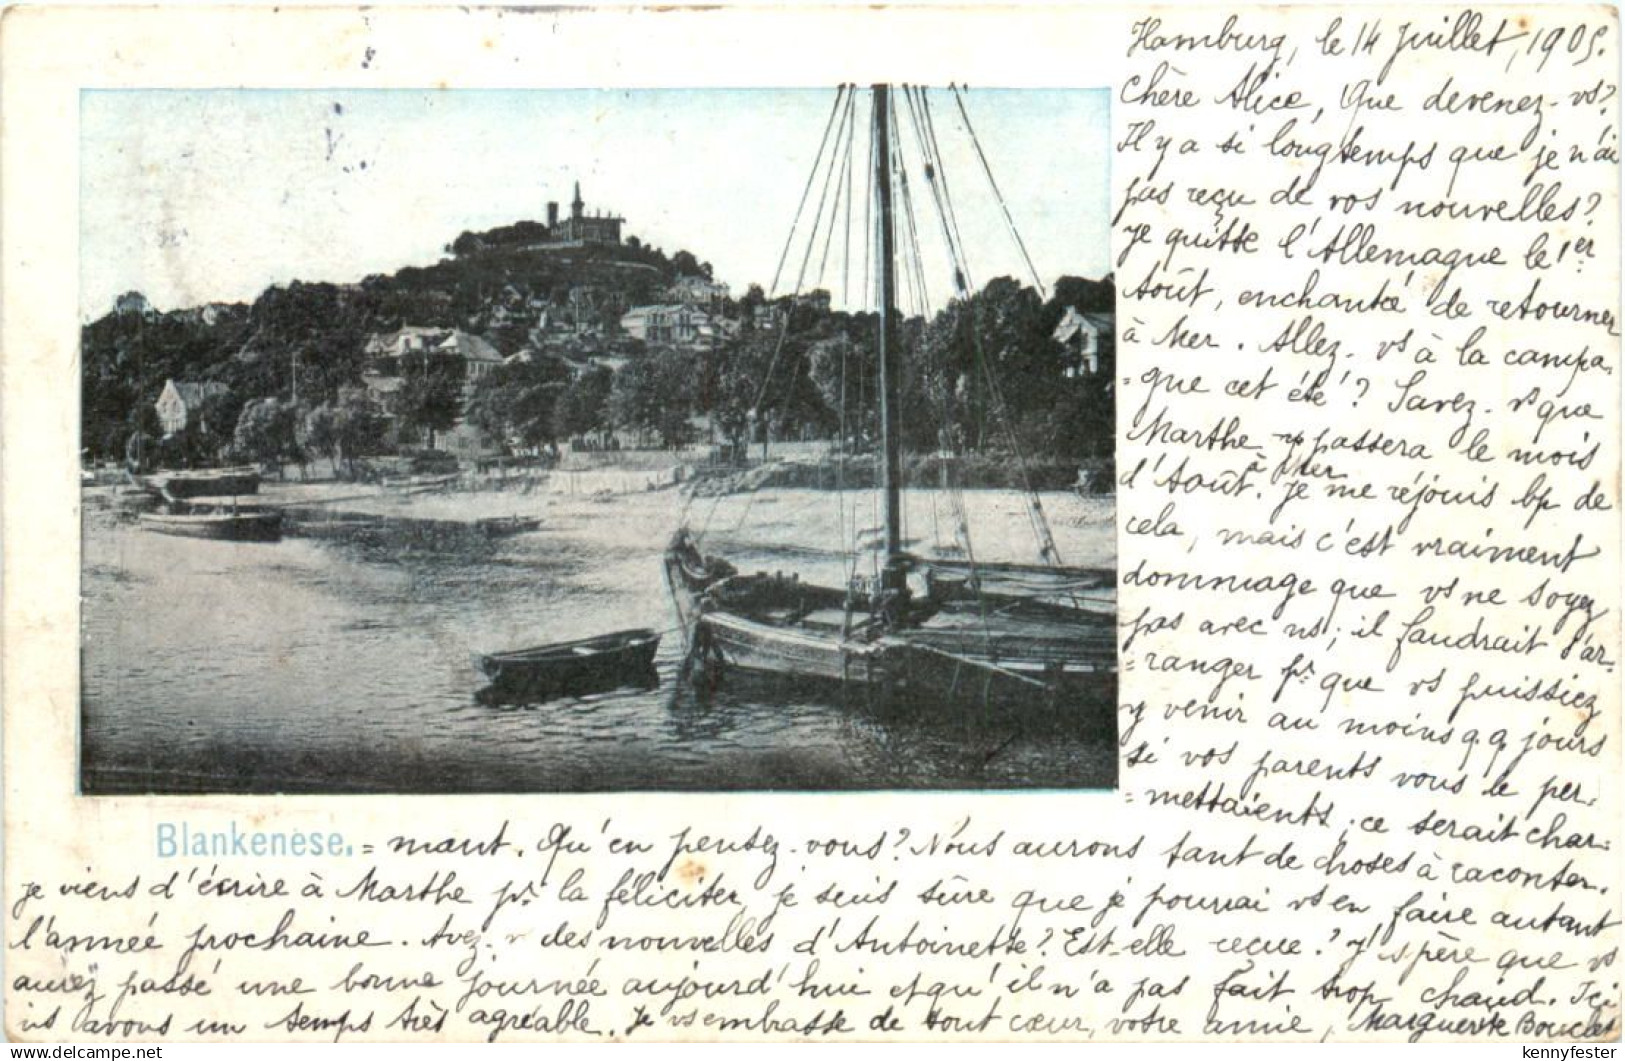 Hamburg, le 14 Juillet, 1905.
Chère Alice, Que devenez-vs?
Il y a si longtemps que je n'ai
pas reçu de vos nouvelles?
Je quitte l'Allemagne le 1er
Août, enchantée de retourner
à Mer. Allez-vs à la campa-
=gne cet été? Savez-vs que
Marthe passera le mois
d'Août à Mer. Je me réjouis bp de
cela, mais c'est vraiment
dommage que vs ne soyez
pas avec ns; il faudrait s'ar-
=ranger pr que vs puissiez
y venir au moins q.q jours
si vos parents vous le per-
=mettaient; ce serait char-
Blankenese. =mant. Qu'en pensez-vous? Nous aurons tant de choses à raconter.
je viens d'écrire à Marthe pr la féliciter, je suis sûre que je pourrai vs en faire autant
l'année prochaine. Avez-v des nouvelles d'Antoinette? Est-elle reçue? J'espère que vs
aurez passé une bonne journée aujourd'hui et qu'il n'a pas fait trop chaud. Ici
ns avons un temps très agréable. Je vs embrasse de tout cœur, votre amie, Marguerite
kennyfester